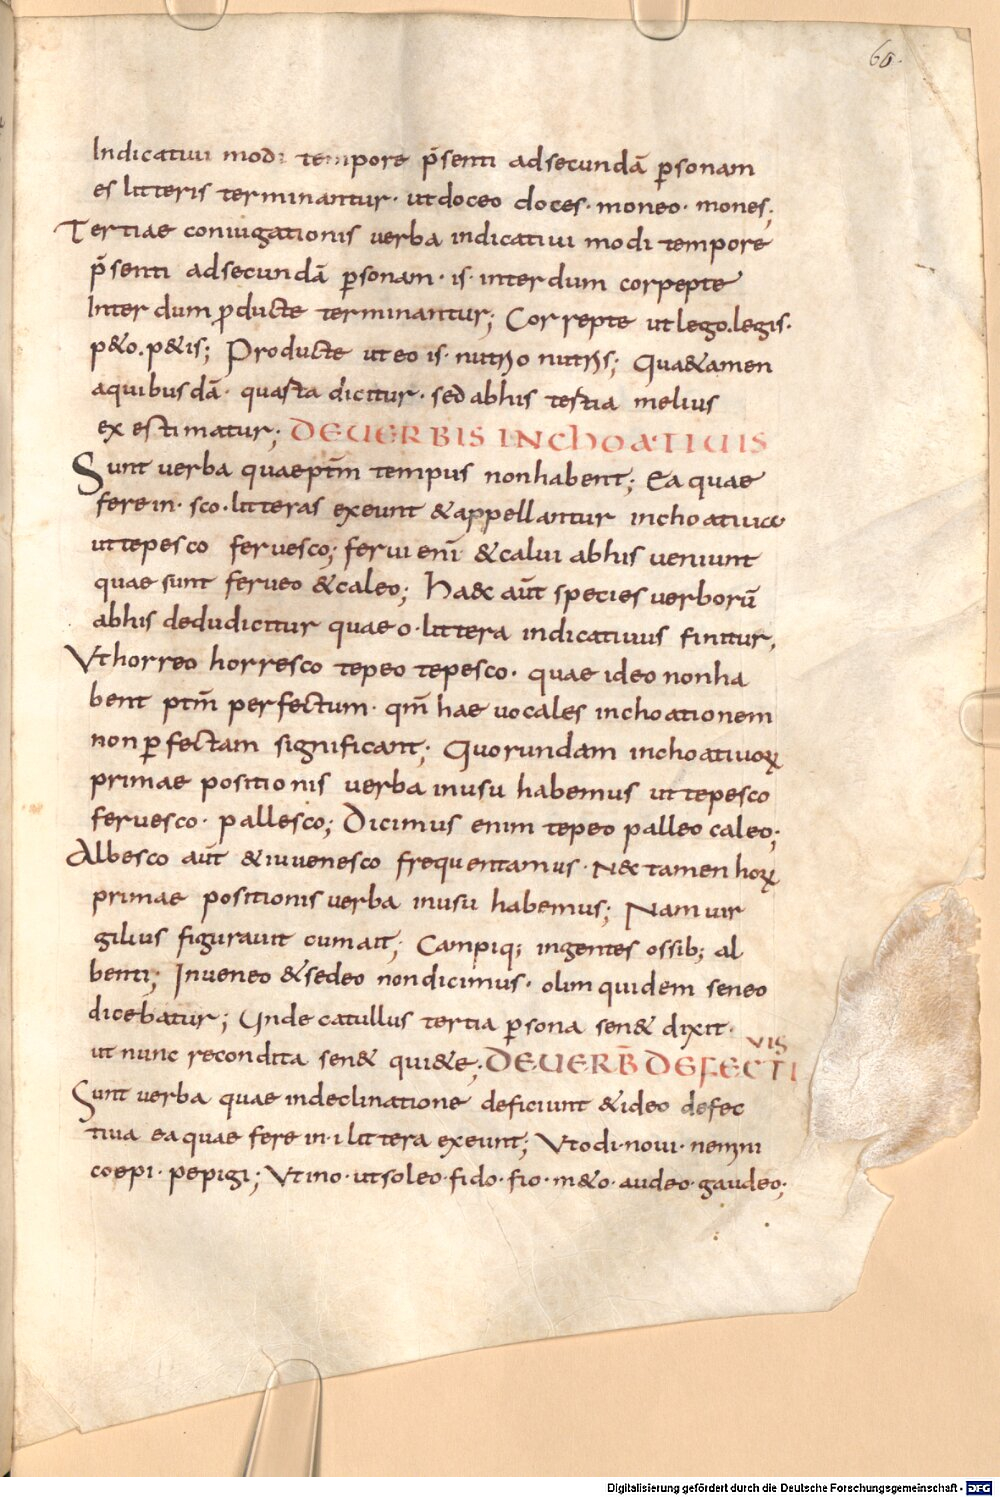 60.
Indicatiui modi tempore p̄senti adsecundā p̱sonam
es litteris terminantur· utdoceo doces· moneo· mones;
Tertiae coniugationis uerba indicatiui modi tempore
p̄senti adsecundā p̱sonam· is· interdum corpepte
Interdum p̱ducte terminantur; Correpte utlego.legis·
p&o.p&is; Producte uteo is· nutrio nutris; Qua&amen
aquibusdā· quarta dicitur· sed abhis tertia melius
exestimatur; DEUERBIS INCHOATIUIS
Sunt uerba quaeptm̄ tempus nonhabent; Ea quae
ferein· sco·litteras exeunt &appellantur inchoatiuae
uttepesco feruesco; ferui eni &calui abhis ueniunt
quae sunt ferueo &caleo; Haec aūt species uerborū
abhis dedudicitur quae o·littera indicatiuus finitur,
Uthorreo horresco tepeo tepesco· quae ideo nonha
bent ptm̄ perfectum· qm̄ hae uocales inchoationem
non p̱fectam significant; Quorundam inchoatiuoꝝ
primae positionis uerba inusu habemus ut tepesco
feruesco· pallesco; Dicimus enim tepeo palleo caleo;
Albesco aūt &iuuenesco frequentamus· Nec tamen hoꝝ
primae positionis uerba inusu habemus; Nam uir
gilius figurauit cum ait; Campiq; ingentes ossib; al
benti; Inueneo &sedeo nondicimus· olim quidem seneo
dicebatur; Unde catullus tertia p̱sona sen& dixit·
ut nunc recondita sen& qui&e; DEUERB̄ DEFECTI
UIS
Sunt uerba quae indeclinatione deficiunt &ideo defec
tiua ea quae fere in·i littera exeunt; Utodi·noui· nemini
coepi· pepigi; Utino· utsoleo·fido·fio·m&o·audeo·gaudeo;
Digitalisierung gefördert durch die Deutsche Forschungsgemeinschaft - DFG